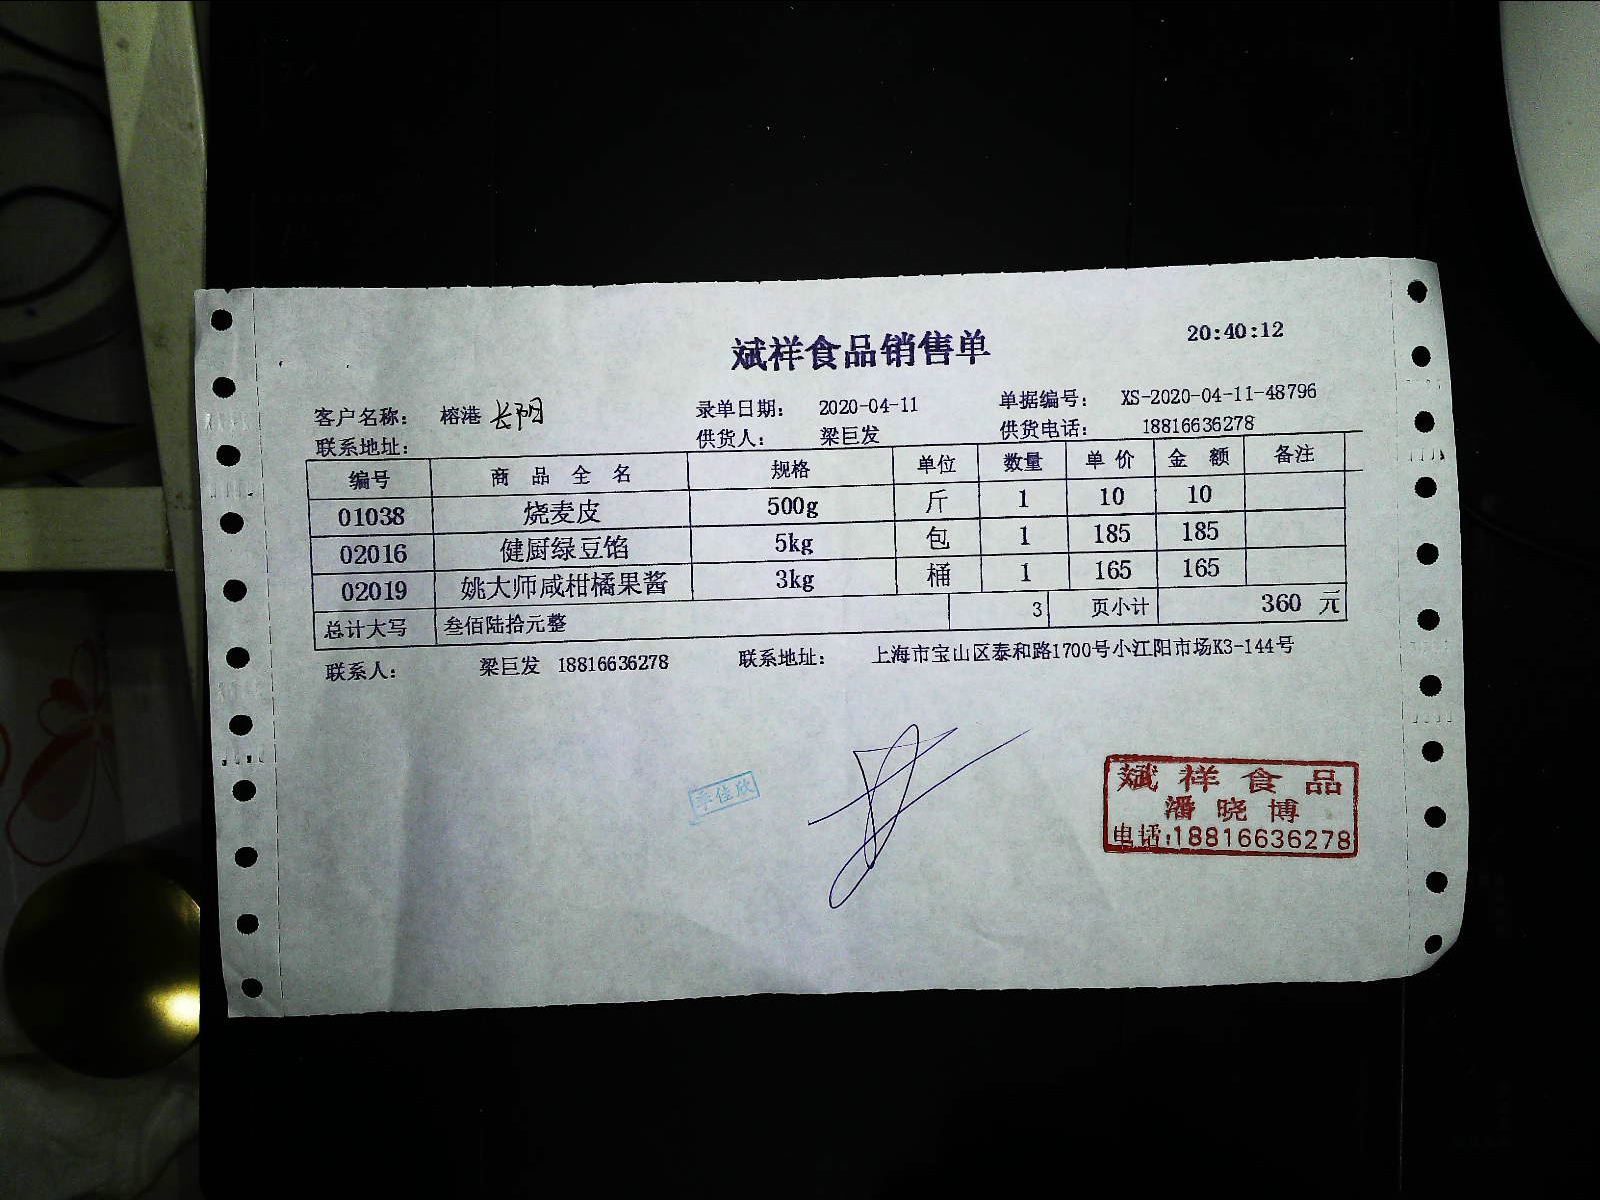 斌祥食品销售单 20:40:12
客户名称: 榕港 长阳 录单日期: 2020-04-11 单据编号: XS-2020-04-11-48796
联系地址: 供货人: 梁巨发 供货电话: 18816636278
编号 商品全名 规格 单位 数量 单价 金额 备注
01038 烧麦皮 500g 斤 1 10 10
02016 健厨绿豆馅 5kg 包 1 185 185
02019 姚大师咸柑橘果酱 3kg 桶 1 165 165
总计大写 叁佰陆拾元整 3 页小计 360 元
联系人: 梁巨发 18816636278 联系地址: 上海市宝山区泰和路1700号小江阳市场K3-144号
斌祥食品
潘晓博
电话:18816636278